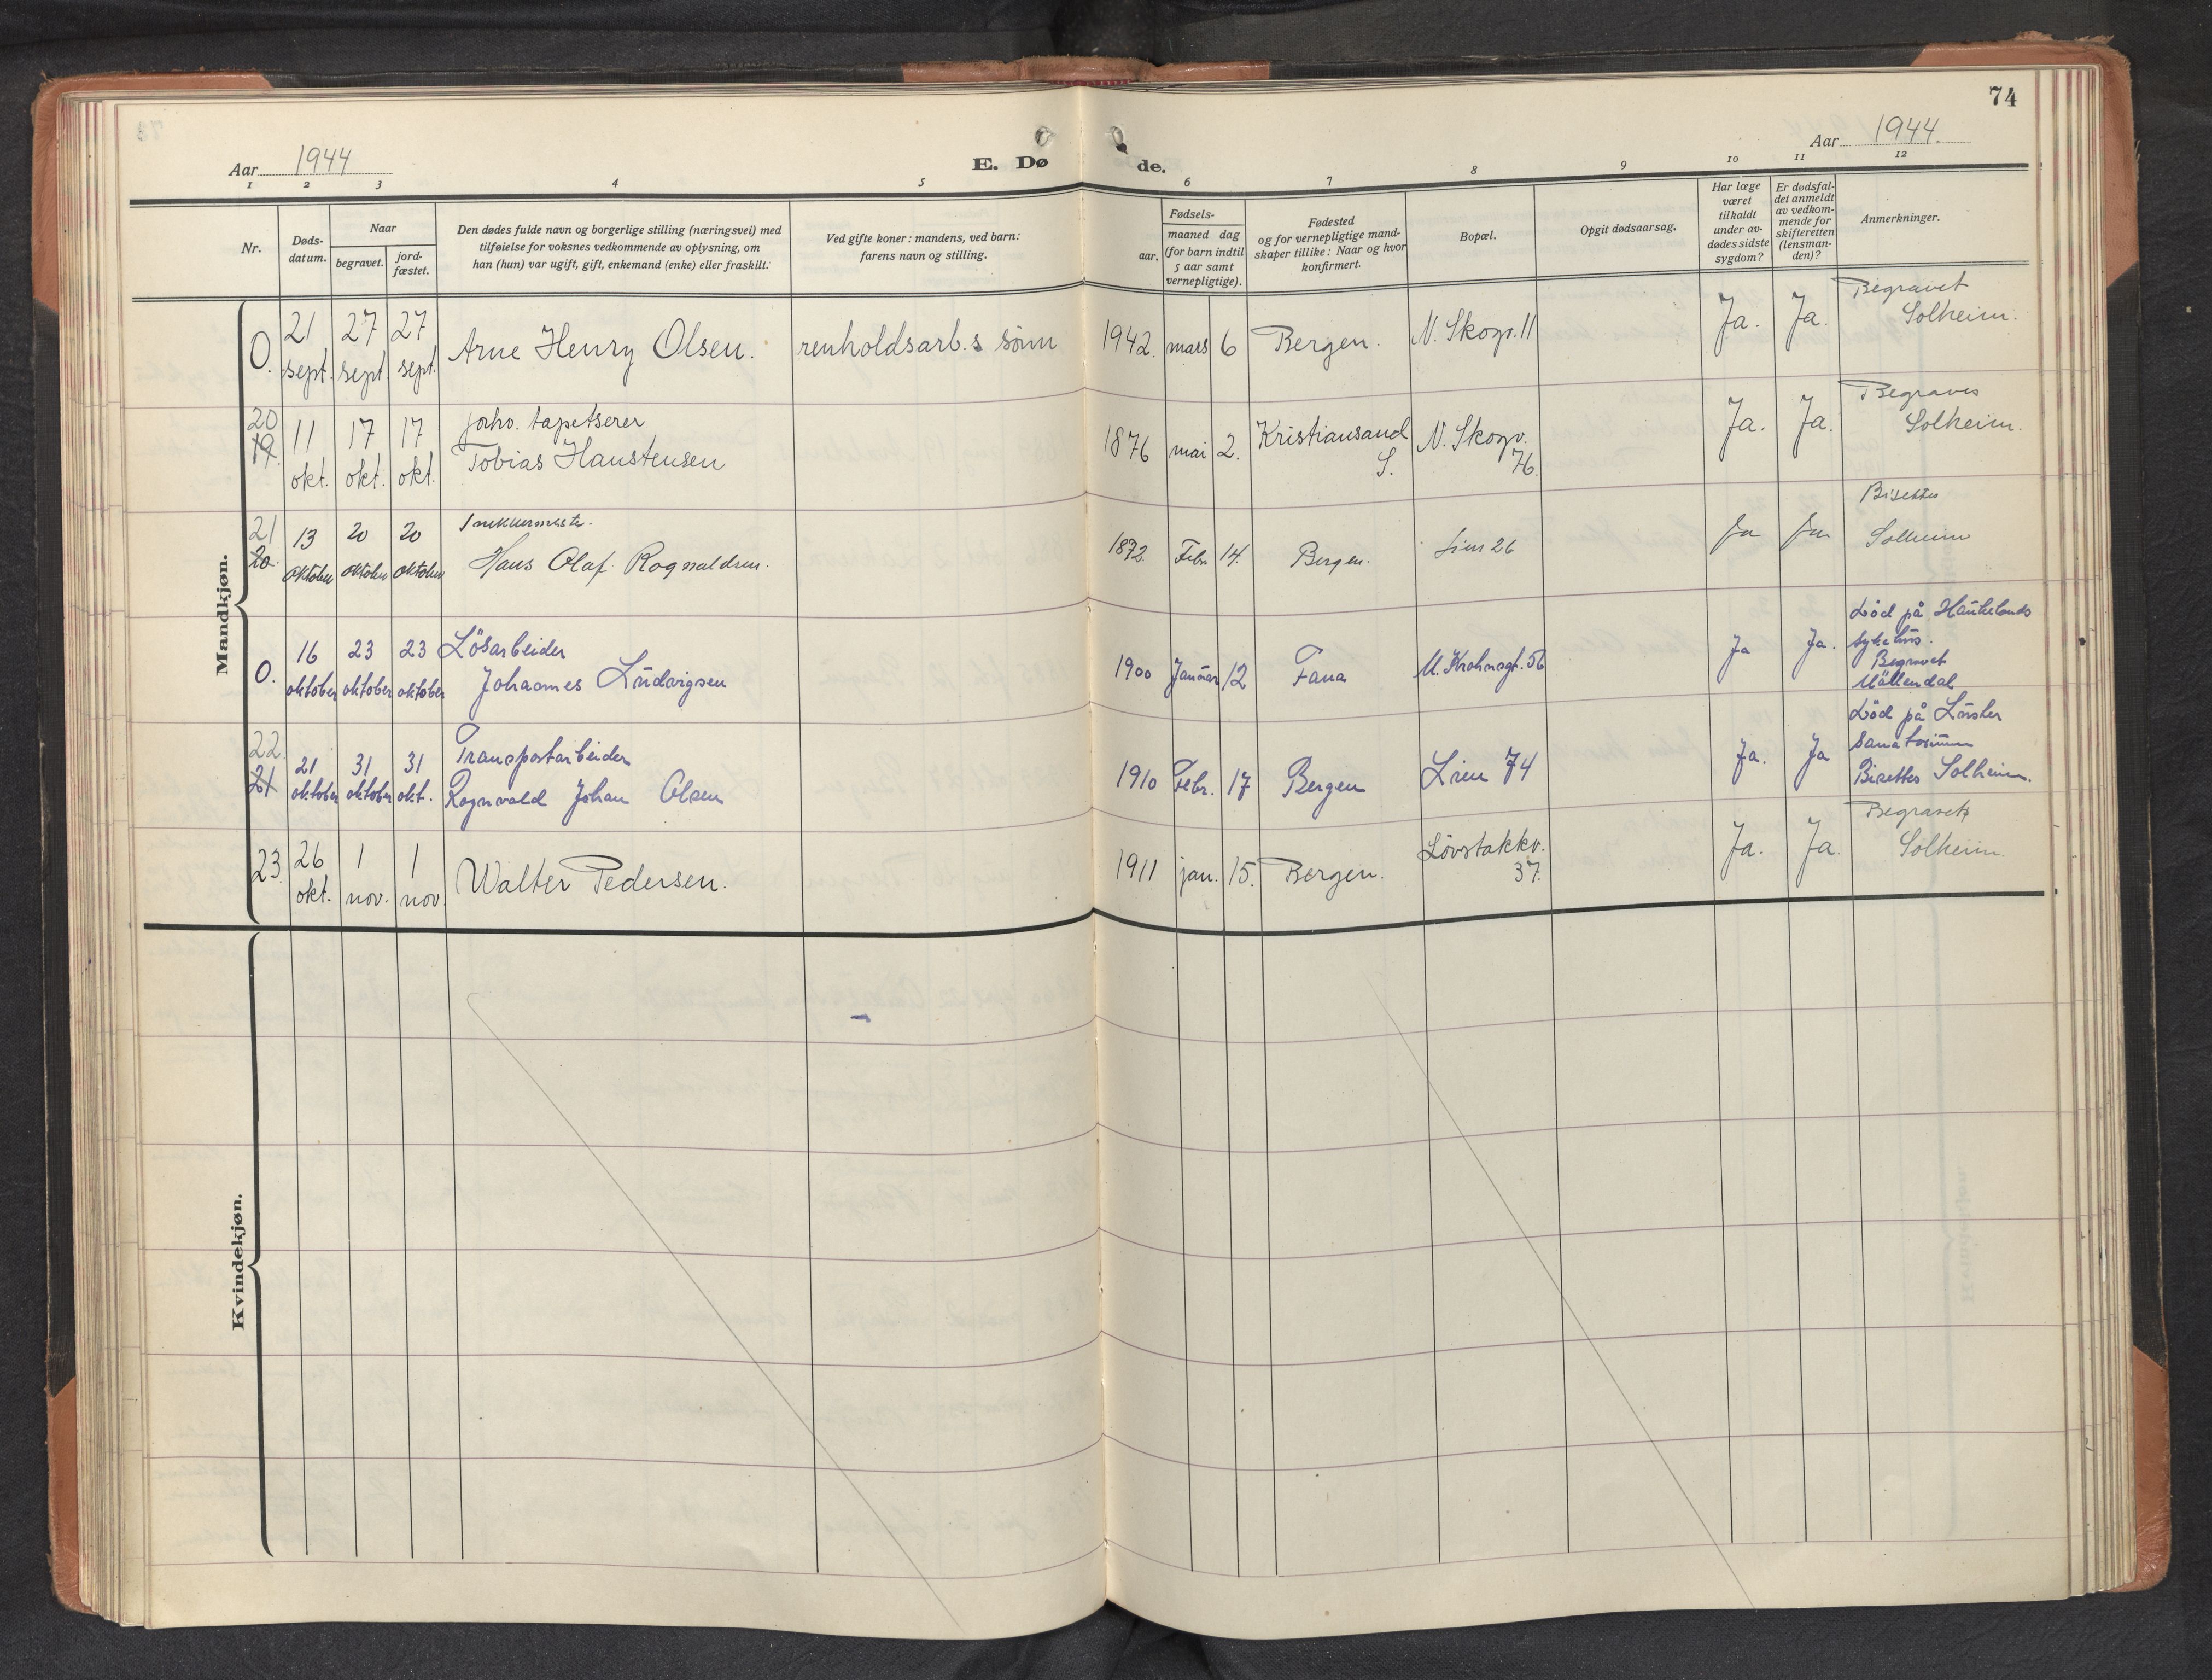 74
Aar 1944
Aar 1944.
E. Dø de.
1 2 3 4 5 6 7 8 9 10 11 12
Nr.
Døds-
datum.
Naar
begravet.
jord-
fæstet.
Den dødes fulde navn og borgerlige stilling (næringsvei) med
tilføielse for voksnes vedkommende av oplysning, om
han (hun) var ugift, gift, enkemand (enke) eller fraskilt.
Ved gifte koner: mandens, ved barn:
farens navn og stilling.
Fødsels-
aar.
maaned dag
(for barn indtil
5 aar samt
vernepligtige).
Fødested
og for vernepligtige mand-
skaper tillike: Naar og hvor
konfirmert.
Bopæl.
Opgit dødsaarsag.
Har læge
været
tilkaldt
under av-
dødes sidste
sygdom?
Er dødsfal-
det anmeldt
av vedkom-
mende for
skifteretten
(lensman-
den)?
Anmerkninger.
Mandkjøn.
O. 21 sept. 27 sept. 27 sept. Arne Henry Olsen. renholdsarb.s sönn 1942. mars 6 Bergen. N. Skogv. 11 Ja. Ja. Begravet
Solheim.
20 19. 11 okt. 17 okt. 17 okt. forhv. tapetserer
Tobias Haustensen 1876 mai 2. Kristiansand
S. N. Skogv.
76. Ja. Ja. Begraves
Solheim.
21 20. 13 oktober 20 oktober 20 oktober Snekkermester.
Hans Olaf Rognaldsen. 1872. Febr 14. Bergen. Lien 26 Ja Ja Bisettes
Solheim
O. 16 oktober 23 oktober 23 oktober Lösarbeider
Johannes Ludvigsen 1900 Januar 12 Fana M. Krohnsgt. 56 Ja Ja. Död på Haukelands
sykehus.
Begravet
Möllendal
22. 21 21 oktober 31 oktober 31 okt. Transportarbeider
Rognvald Johan Olsen 1910 Febr. 17 Bergen Lien 74 Ja. Ja Död på
Sanatorium
Bisettes Solheim.
23. 26 okt. 1 nov. 1 nov Walter Pedersen. 1911 jan. 15. Bergen. Lövstakkv.
37. Ja. Ja. Begravets
Solheim.
Kvindekjøn.